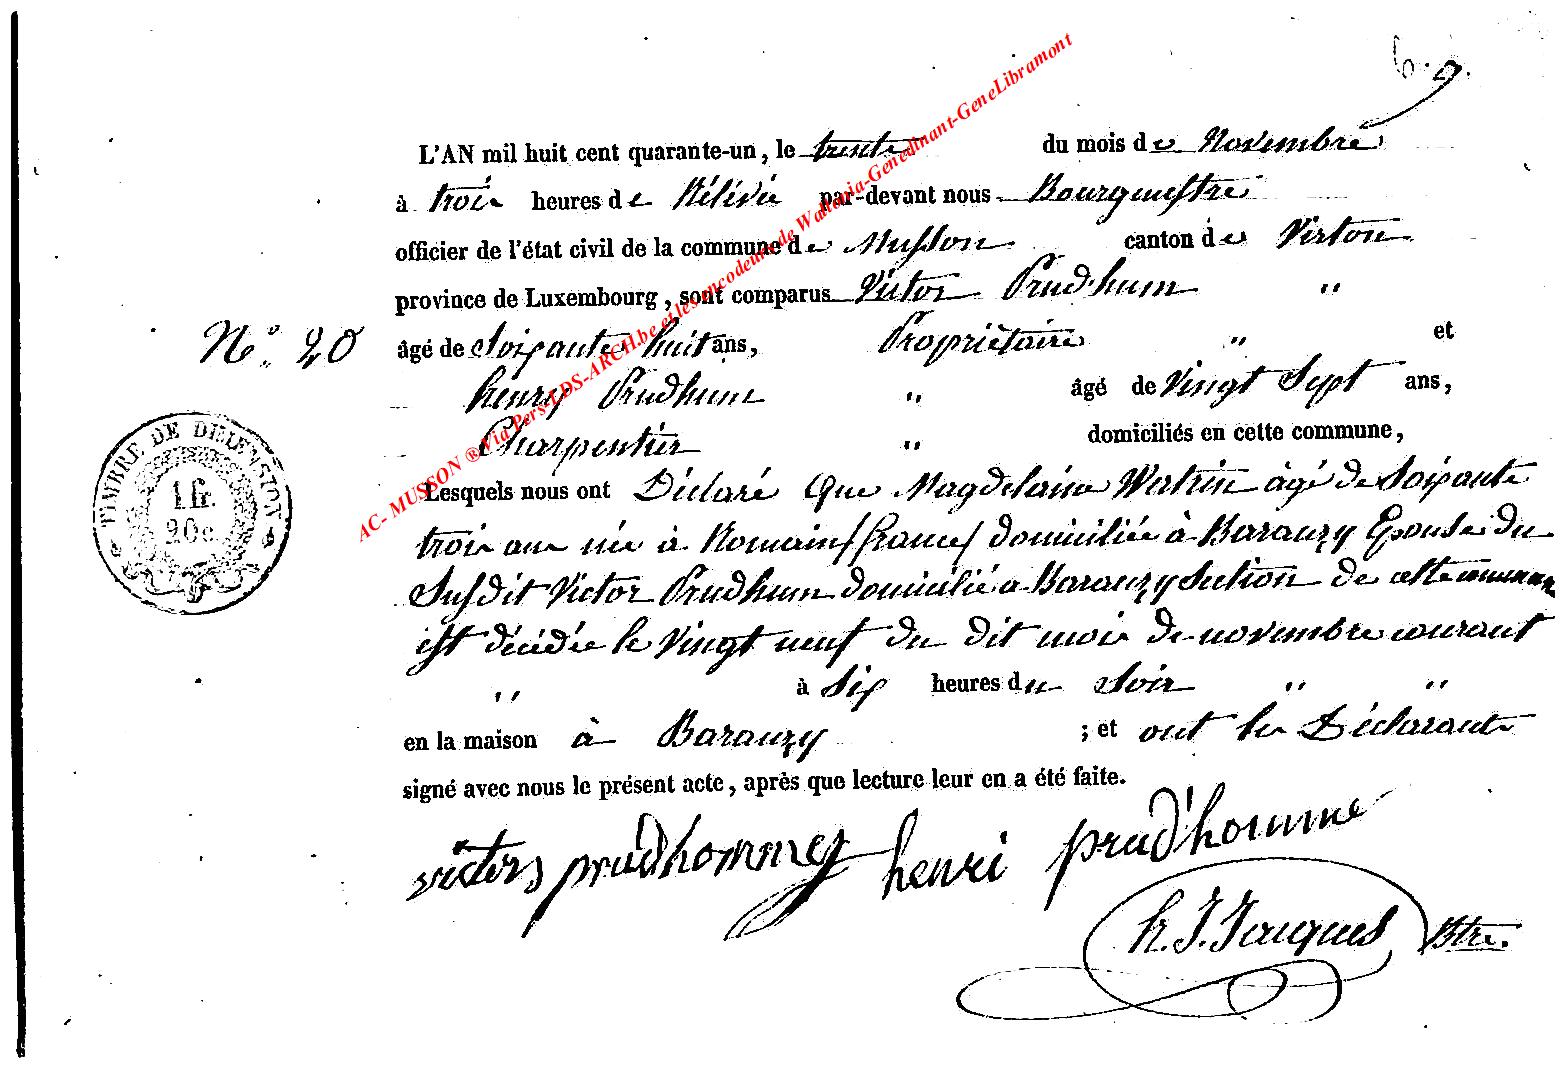 6. 9.
L'AN mil huit cent quarante-un, le trente du mois de Novembre
à trois heures de Rélévée par-devant nous Bourgmestre
officier de l'état civil de la commune de Musson canton de Virton
province de Luxembourg, sont comparus Victor Prudhum "
N° 20
âgé de Soixante huit ans, Propriétaire " et
henry Prudhum " âgé de Vingt Sept ans,
Charpentier " domiciliés en cette commune,
Lesquels nous ont Déclaré Que Magdelaine Watrin âgé de Soixante
trois ans née à Romain (france) domiciliée à Baranzy Epouse du
Susdit Victor Prudhum domicilié a Baranzy Section de cette commune
est décédée le Vingt neuf du dit mois de novembre courant
" à Six heures du Soir " "
en la maison à Baranzy ; et ont les Déclarants
signé avec nous le présent acte, après que lecture leur en a été faite.
victors prudhommes henri prud'homme
h. J. Jacques Btre.
TIMBRE DE DIMENSION
1 fr.
20 c.
AC- MUSSON ® Via Pers-LDS-ARCH.be et les encodeurs de Wallonia-Genedinant-GeneLibramont